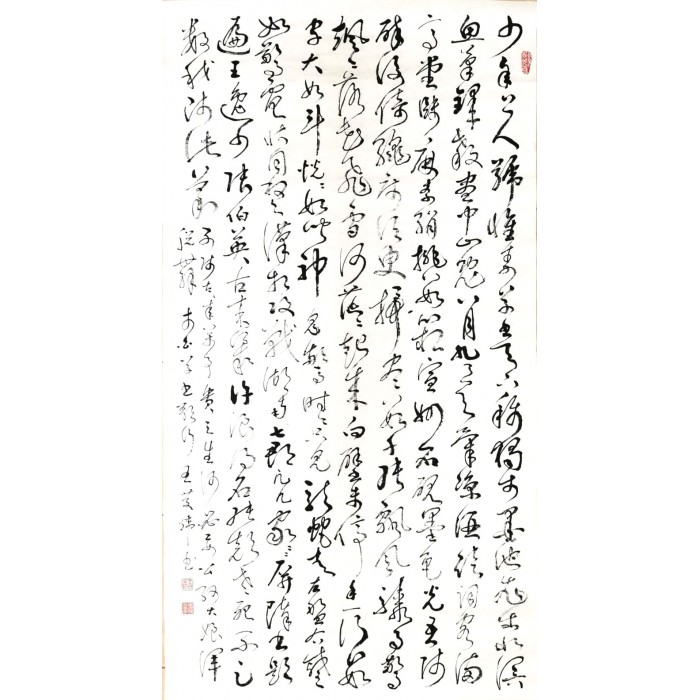 少年上人號懷素草書天下稱獨步墨池飛出北溟
魚筆鋒殺盡中山兔八月九月天氣涼酒徒詞客滿
高堂牋麻素絹排數箱宣州石硯墨色光吾師
醉後倚繩床須臾掃盡數千張飄風驟雨驚
颯颯落花飛雪何茫茫起來向壁不停手一行數
字大如斗恍恍如聞神鬼驚時時只見龍蛇走左盤右蹙
如驚電狀同楚漢相攻戰湖南七郡凡幾家家家屏障書題
遍王逸少張伯英古來幾許浪得名張顛老死不足
數我師此義
不師古古來萬事貴天生何必要公孫大娘渾
脱舞 李白草書歌行 王